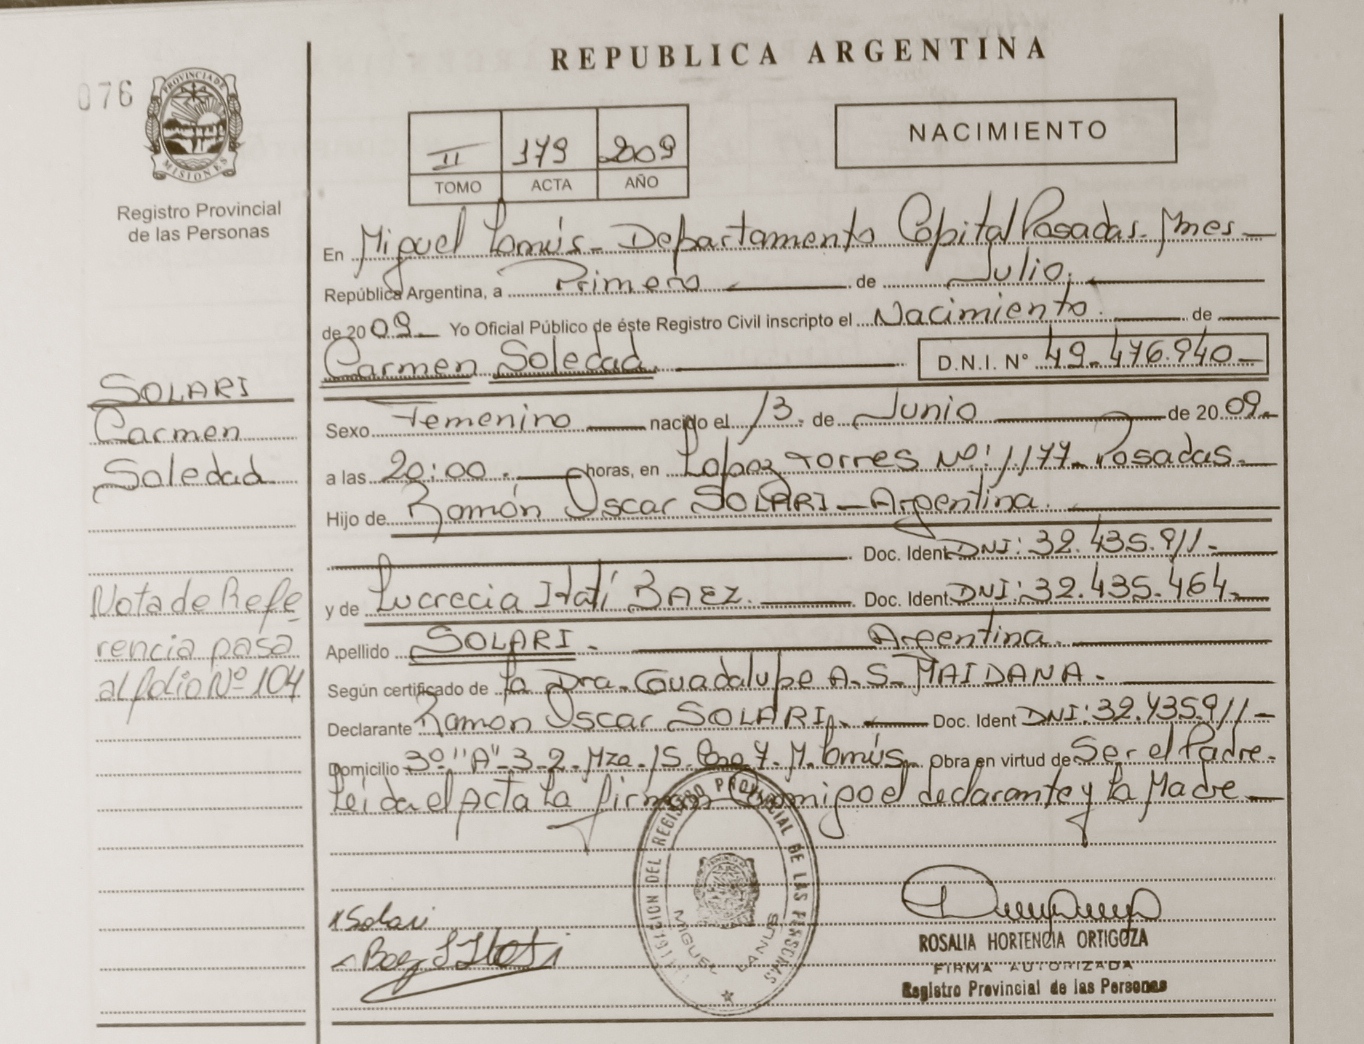 REPUBLICA ARGENTINA
076
PROVINCIA DE MISIONES
Registro Provincial
de las Personas
II 179 2009
TOMO ACTA AÑO
NACIMIENTO
En Miguel Lanús - Departamento Capital Posadas - Mnes -
República Argentina, a Primero de Julio
de 2009 Yo Oficial Público de éste Registro Civil inscripto el Nacimiento de
Carmen Soledad D.N.I. Nº 49.476.940-
Sexo Femenino nacido el 13 de Junio de 2009-
a las 20:00 horas, en López Torres Nº: 1177- Posadas-
Hijo de Ramón Oscar SOLARI - Argentina
Doc. Ident DNI: 32.435.911-
y de Lucrecia Itatí BAEZ Doc. Ident DNI: 32.435.464-
Apellido SOLARI - Argentina
Según certificado de la Dra. Guadalupe A.S. MAIDANA -
Declarante Ramon Oscar SOLARI Doc. Ident DNI: 32.435911-
Domicilio 3º "A"-3-2-Mza-15 7-M. Lanús Obra en virtud de Ser el Padre-
Leida el Acta la firman Conmigo el declarante y la Madre
SOLARI
Carmen
Soledad
Nota de Refe
rencia pasa
al folio Nº 104
Solari
Baez
DEL REGISTRO PROVINCIAL DE LAS PERSONAS
MIGUEL LANUS
ROSALIA HORTENCIA ORTIGOZA
FIRMA AUTORIZADA
Registro Provincial de las Personas